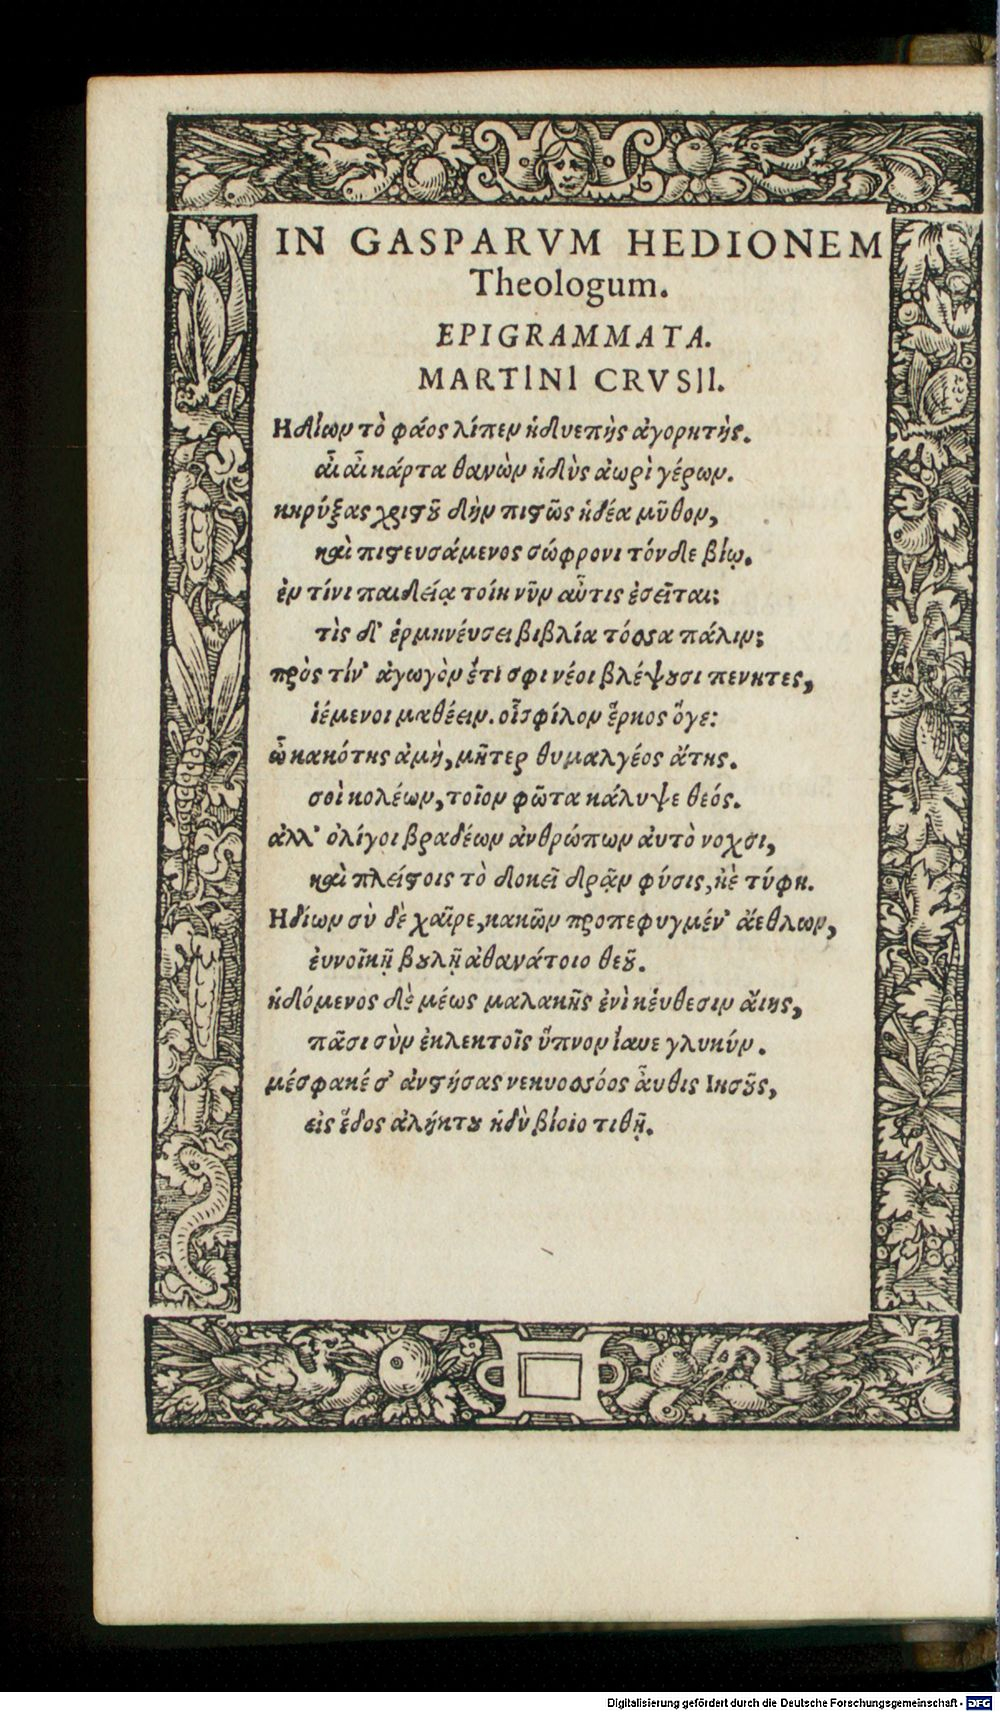 IN GASPARVM HEDIONEM
Theologum.
EPIGRAMMATA.
MARTINI CRVSII.
Ηδίων τὸ φάος λίπεν ἡδυεπὴς ἀγορητὴς.
αἶ αἶ κάρτα θανὼν ἡδὺς ἀωρὶ γέρων.
κηρύξας χριστοῦ δὴν πιστῶς ἡδέα μῦθον,
καὶ πιστευσάμενος σώφρονι τόνδε βίῳ.
ἐν τίνι παιδείᾳ τοίη νῦν αὖτις ἐσεῖται;
τὶς δ' ἑρμηνέυσει βιβλία τόσσα πάλιν;
πρὸς τίν' ἀγωγὸν ἔτι σφι νέοι βλέψουσι πενητες,
ἱέμενοι μαθέειν. οἷσφίλον ἕρκος ὅγε:
ὦ κακότης ἀμὴ, μῆτερ θυμαλγέος ἄτης.
σοὶ κολέων, τοῖον φῶτα κάλυψε θεός.
ἀλλ' ὀλίγοι βραδέων ἀνθρώπων ἀυτὸ νοχσι,
καὶ πλείστοις τὸ δοκεῖ δρᾷν φύσις, ἠὲ τύφη.
Ηδίων σὺ δὲ χαῖρε, κακῶν προπεφυγμέν' ἄεθλων,
ἐυνοϊκῇ βουλῇ ἀθανάτοιο θεοῦ.
ἡδόμενος δὲ μέως μαλακῆς ἐνὶ κέυθεσιν ἄιης,
πᾶσι σὺν ἐκλεκτοῖς ὕπνον ἴαυε γλυκύν.
μέσφακέ σ' ἀνστήσας νεκυοσσόος ἆυθις Ιησοῦς,
εἰς ἕδος ἀλήκτου ἡδὺ βίοιο τιθῇ.
Digitalisierung gefördert durch die Deutsche Forschungsgemeinschaft - DFG